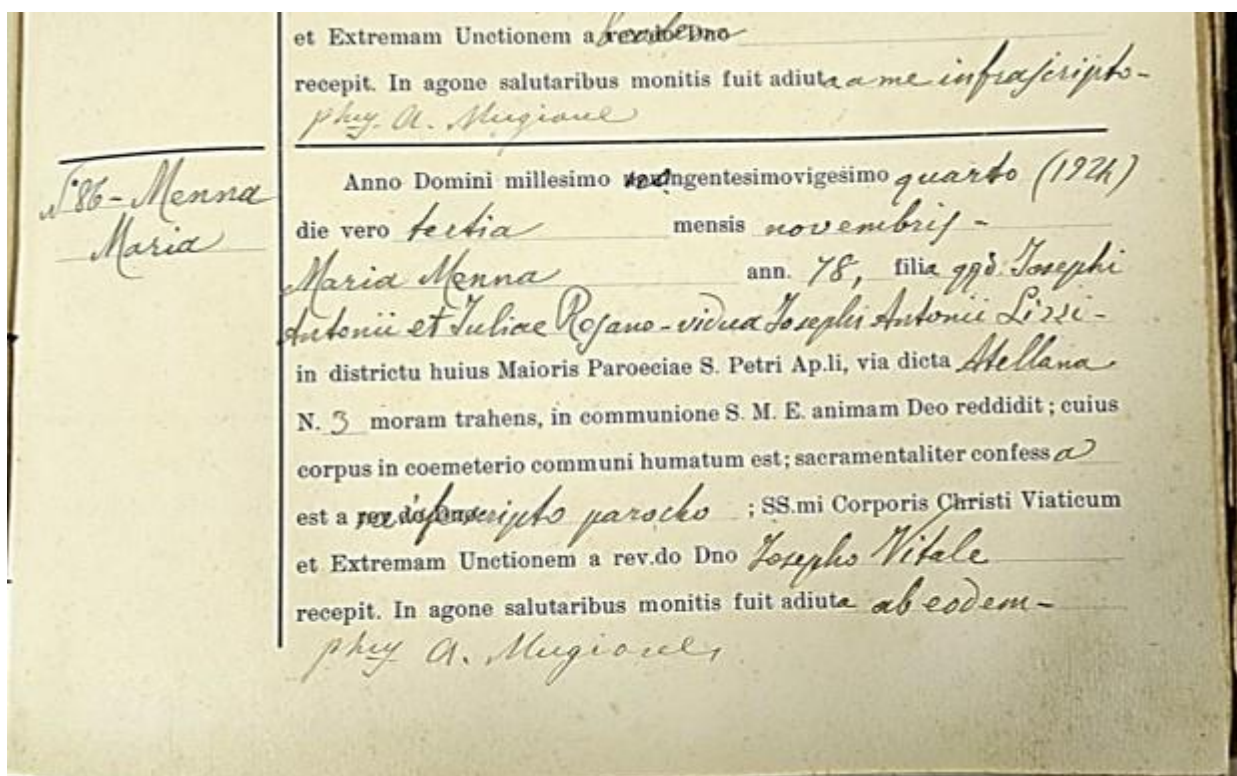 et Extremam Unctionem a rev.do Dno
recepit. In agone salutaribus monitis fuit adiuta a me infrascripto-
A. Mugione
N°86-Menna
Maria
Anno Domini millesimo nongentesimovigesimo quarto (1924)
die vero tertia mensis novembris-
Maria Menna ann. 78, filia qqd. Josephi
Antonii et Juliae Rosano-vidua Josephi Antonii Lizzi-
in districtu huius Maioris Paroeciae S. Petri Ap.li, via dicta Atellana
N. 3 moram trahens, in communione S. M. E. animam Deo reddidit; cuius
corpus in coemeterio communi humatum est; sacramentaliter confessa
est a me infrascripto parocho ; SS.mi Corporis Christi Viaticum
et Extremam Unctionem a rev.do Dno Josepho Vitale
recepit. In agone salutaribus monitis fuit adiuta ab eodem-
A. Mugione